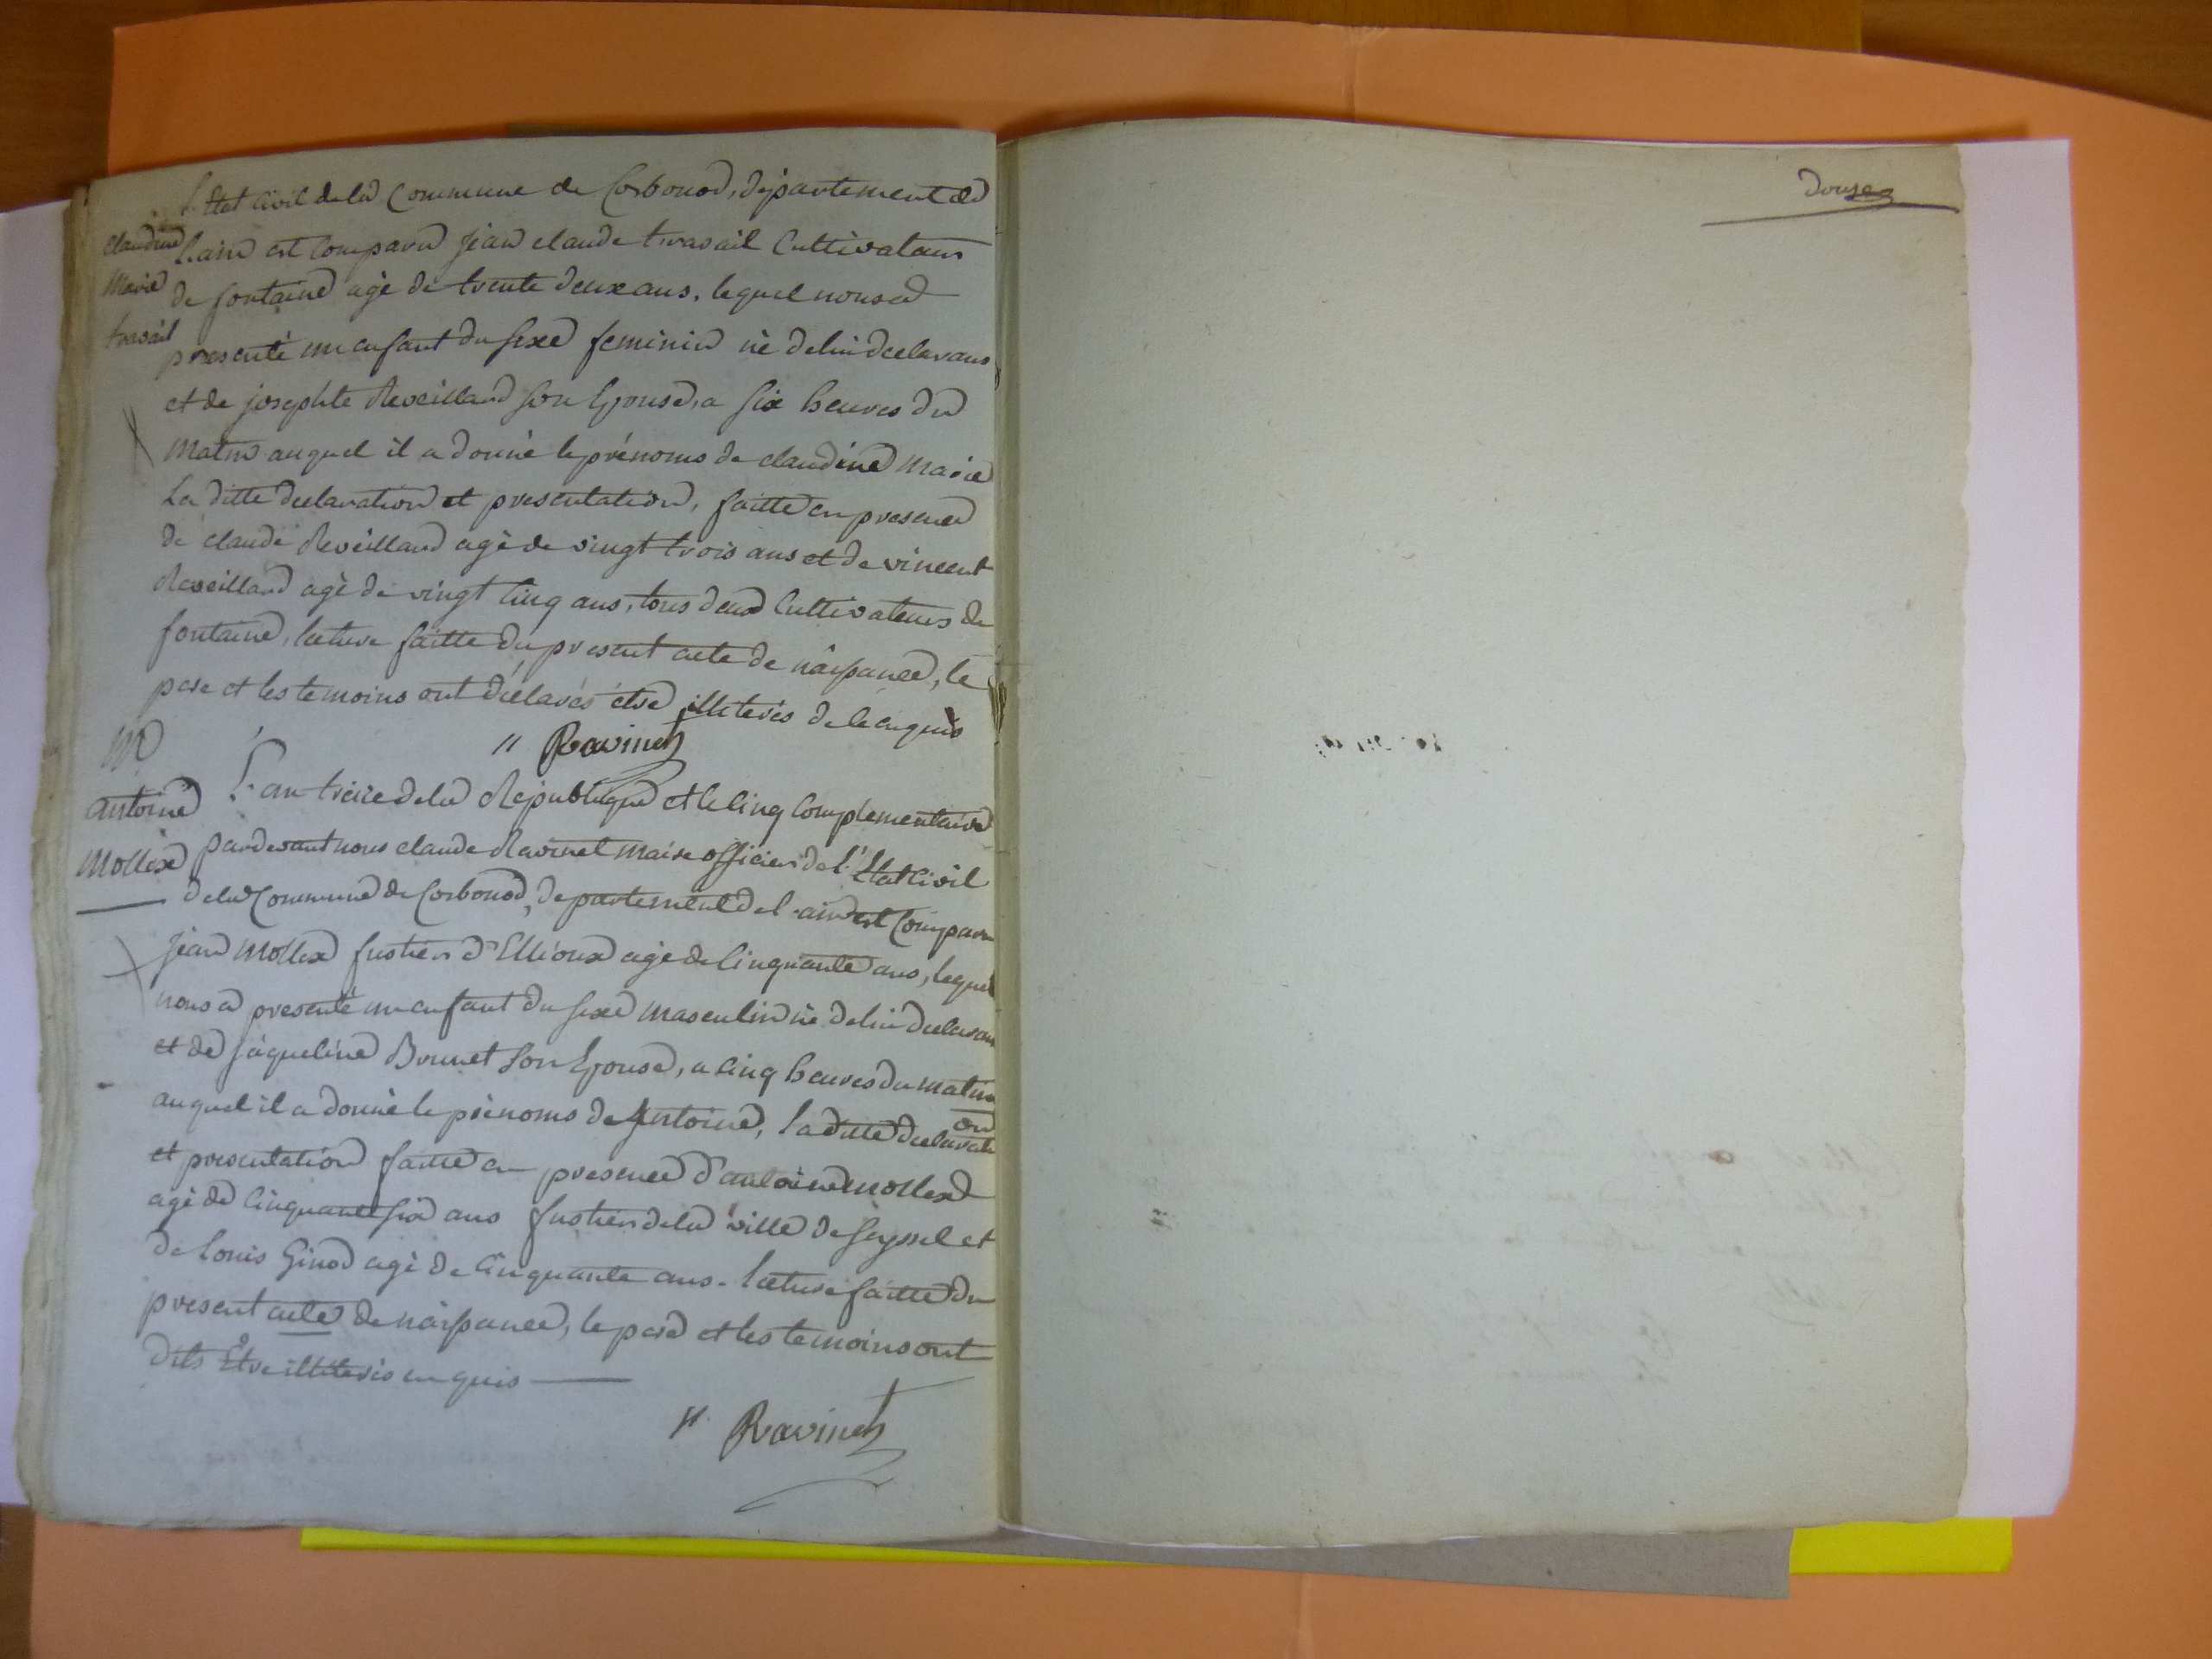 l'Etat Civil de la Commune de Corbonod, département de
claudine
Marie
travail
l'ain est comparu jean claude travail Cultivateur
de fontaine agé de trente deux ans, lequel nous a
presenté un enfant du sexe feminin né de lui declarans
et de josephte Reveillard son Epouse, a six heures du
matin auquel il a donné le prénoms de claudine Marie
La ditte declaration et presentation, faitte en presence
de claude Reveillard agé de vingt trois ans et de vincent
Reveillard agé de vingt cinq ans, tous deux Cultivateurs de
fontaine, lecture faitte du present acte de naissance, le
pere et les temoins ont déclarés étre illeterés de ce enquis
" Ravinet
antoine
Mollex
L'an treize de la Republique et le cinq complementaire
pardevant nous claude Ravinet Maire officier de l'Etat Civil
de la Commune de Corbonod, departement de l'ain est comparu
jean Mollex fustier d'Elloux agé de Cinquante ans, lequel
nous a presenté un enfant du sexe masculin né de lui declarant
et de jaqueline Bonnet son Epouse, a cinq heures du matin
auquel il a donné le prénoms de Antoine, la ditte declaration
et presentation faitte en presence d'antoine mollex
agé de Cinquante six ans fustier de la ville de seyssel et
de Louis Ginod agé de Cinquante ans. lecture faitte du
present acte de naissance, le pere et les temoins ont
dits Etre illeterés enquis
" Ravinet
Douze